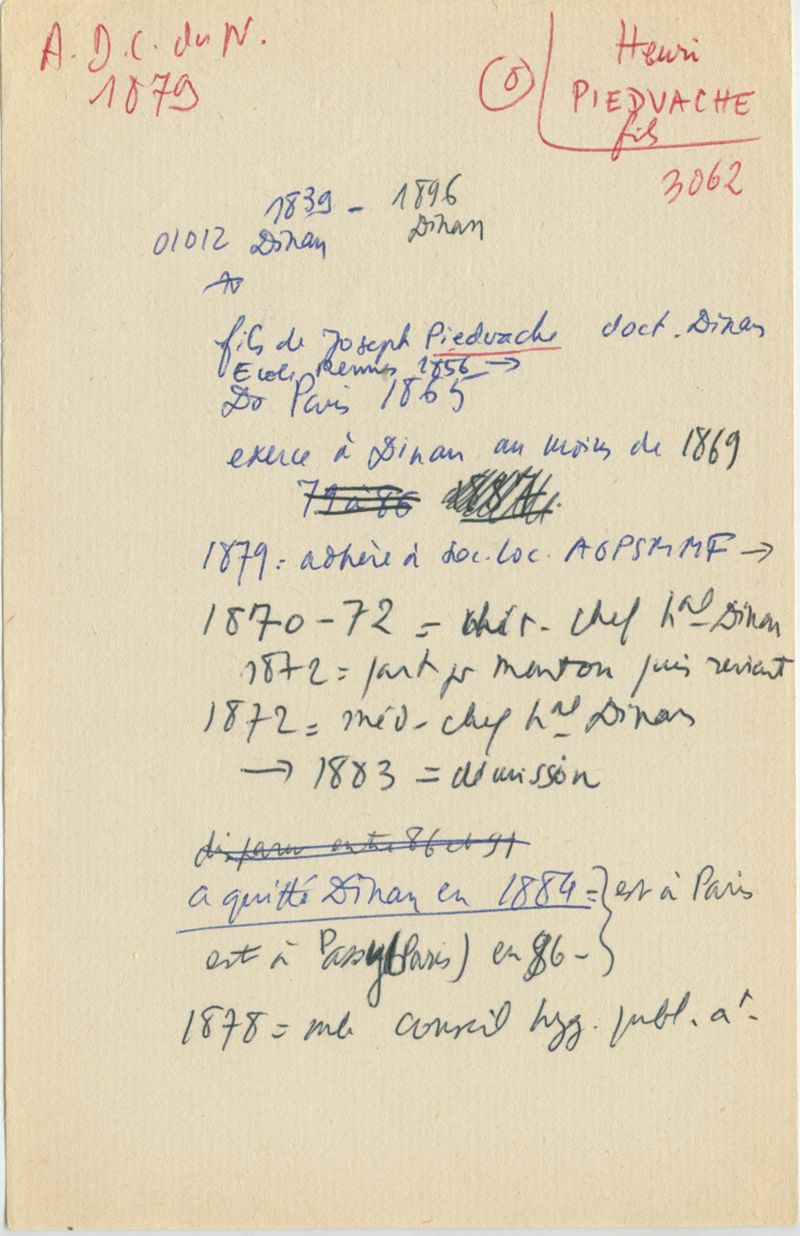 A.D.C. du N.
1879
Henri
PIEDVACHE
fils
3062
1839 - 1896
01012 Dinan Dinan
fils de Joseph Piedvache doct. Dinan
Ecole Rennes 1856 →
Do Paris 1865
exerce à Dinan au moins de 1869
79 à 86
1879 = adhère à Soc. loc. AGPSMMF →
1870-72 = chir. chef hal Dinan
1872 = part pr Menton puis revient
1872 = méd. chef hal Dinan
→ 1883 = démission
disparu entre 86 et 91
a quitté Dinan en 1884 = est à Paris
est à Passy (Paris) en 86 -
1878 = mb conseil hyg. publ. at.